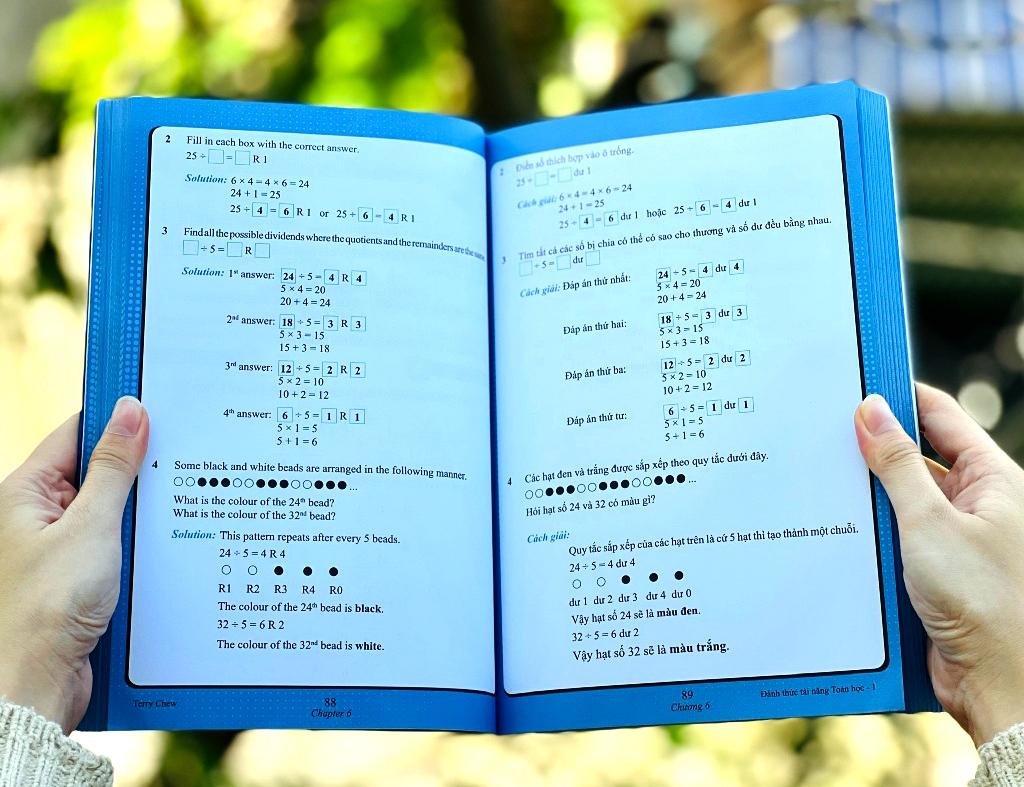 2 Fill in each box with the correct answer.
25 ÷ □ = □ R 1
Solution: 6 × 4 = 4 × 6 = 24
24 + 1 = 25
25 ÷ 4 = 6 R 1 or 25 ÷ 6 = 4 R 1
3 Find all the possible dividends where the quotients and the remainders are the same.
□ ÷ 5 = □ R □
Solution: 1st answer: 24 ÷ 5 = 4 R 4
5 × 4 = 20
20 + 4 = 24
2nd answer: 18 ÷ 5 = 3 R 3
5 × 3 = 15
15 + 3 = 18
3rd answer: 12 ÷ 5 = 2 R 2
5 × 2 = 10
10 + 2 = 12
4th answer: 6 ÷ 5 = 1 R 1
5 × 1 = 5
5 + 1 = 6
4 Some black and white beads are arranged in the following manner.
○○●●●○○●●●○○●●●...
What is the colour of the 24th bead?
What is the colour of the 32nd bead?
Solution: This pattern repeats after every 5 beads.
24 ÷ 5 = 4 R 4
○ ○ ● ● ●
R1 R2 R3 R4 R0
The colour of the 24th bead is black.
32 ÷ 5 = 6 R 2
The colour of the 32nd bead is white.
Terry Chew
88
Chapter 6
2 Điền số thích hợp vào ô trống.
25 ÷ □ = □ dư 1
Cách giải: 6 × 4 = 4 × 6 = 24
24 + 1 = 25
25 ÷ 4 = 6 dư 1 hoặc 25 ÷ 6 = 4 dư 1
3 Tìm tất cả các số bị chia có thể có sao cho thương và số dư đều bằng nhau.
□ ÷ 5 = □ dư □
Cách giải: Đáp án thứ nhất: 24 ÷ 5 = 4 dư 4
5 × 4 = 20
20 + 4 = 24
Đáp án thứ hai: 18 ÷ 5 = 3 dư 3
5 × 3 = 15
15 + 3 = 18
Đáp án thứ ba: 12 ÷ 5 = 2 dư 2
5 × 2 = 10
10 + 2 = 12
Đáp án thứ tư: 6 ÷ 5 = 1 dư 1
5 × 1 = 5
5 + 1 = 6
4 Các hạt đen và trắng được sắp xếp theo quy tắc dưới đây.
○○●●●○○●●●○○●●●...
Hỏi hạt số 24 và 32 có màu gì?
Cách giải:
Quy tắc sắp xếp của các hạt trên là cứ 5 hạt thì tạo thành một chuỗi.
24 ÷ 5 = 4 dư 4
○ ○ ● ● ●
dư 1 dư 2 dư 3 dư 4 dư 0
Vậy hạt số 24 sẽ là màu đen.
32 ÷ 5 = 6 dư 2
Vậy hạt số 32 sẽ là màu trắng.
89
Chương 6
Đánh thức tài năng Toán học - 1